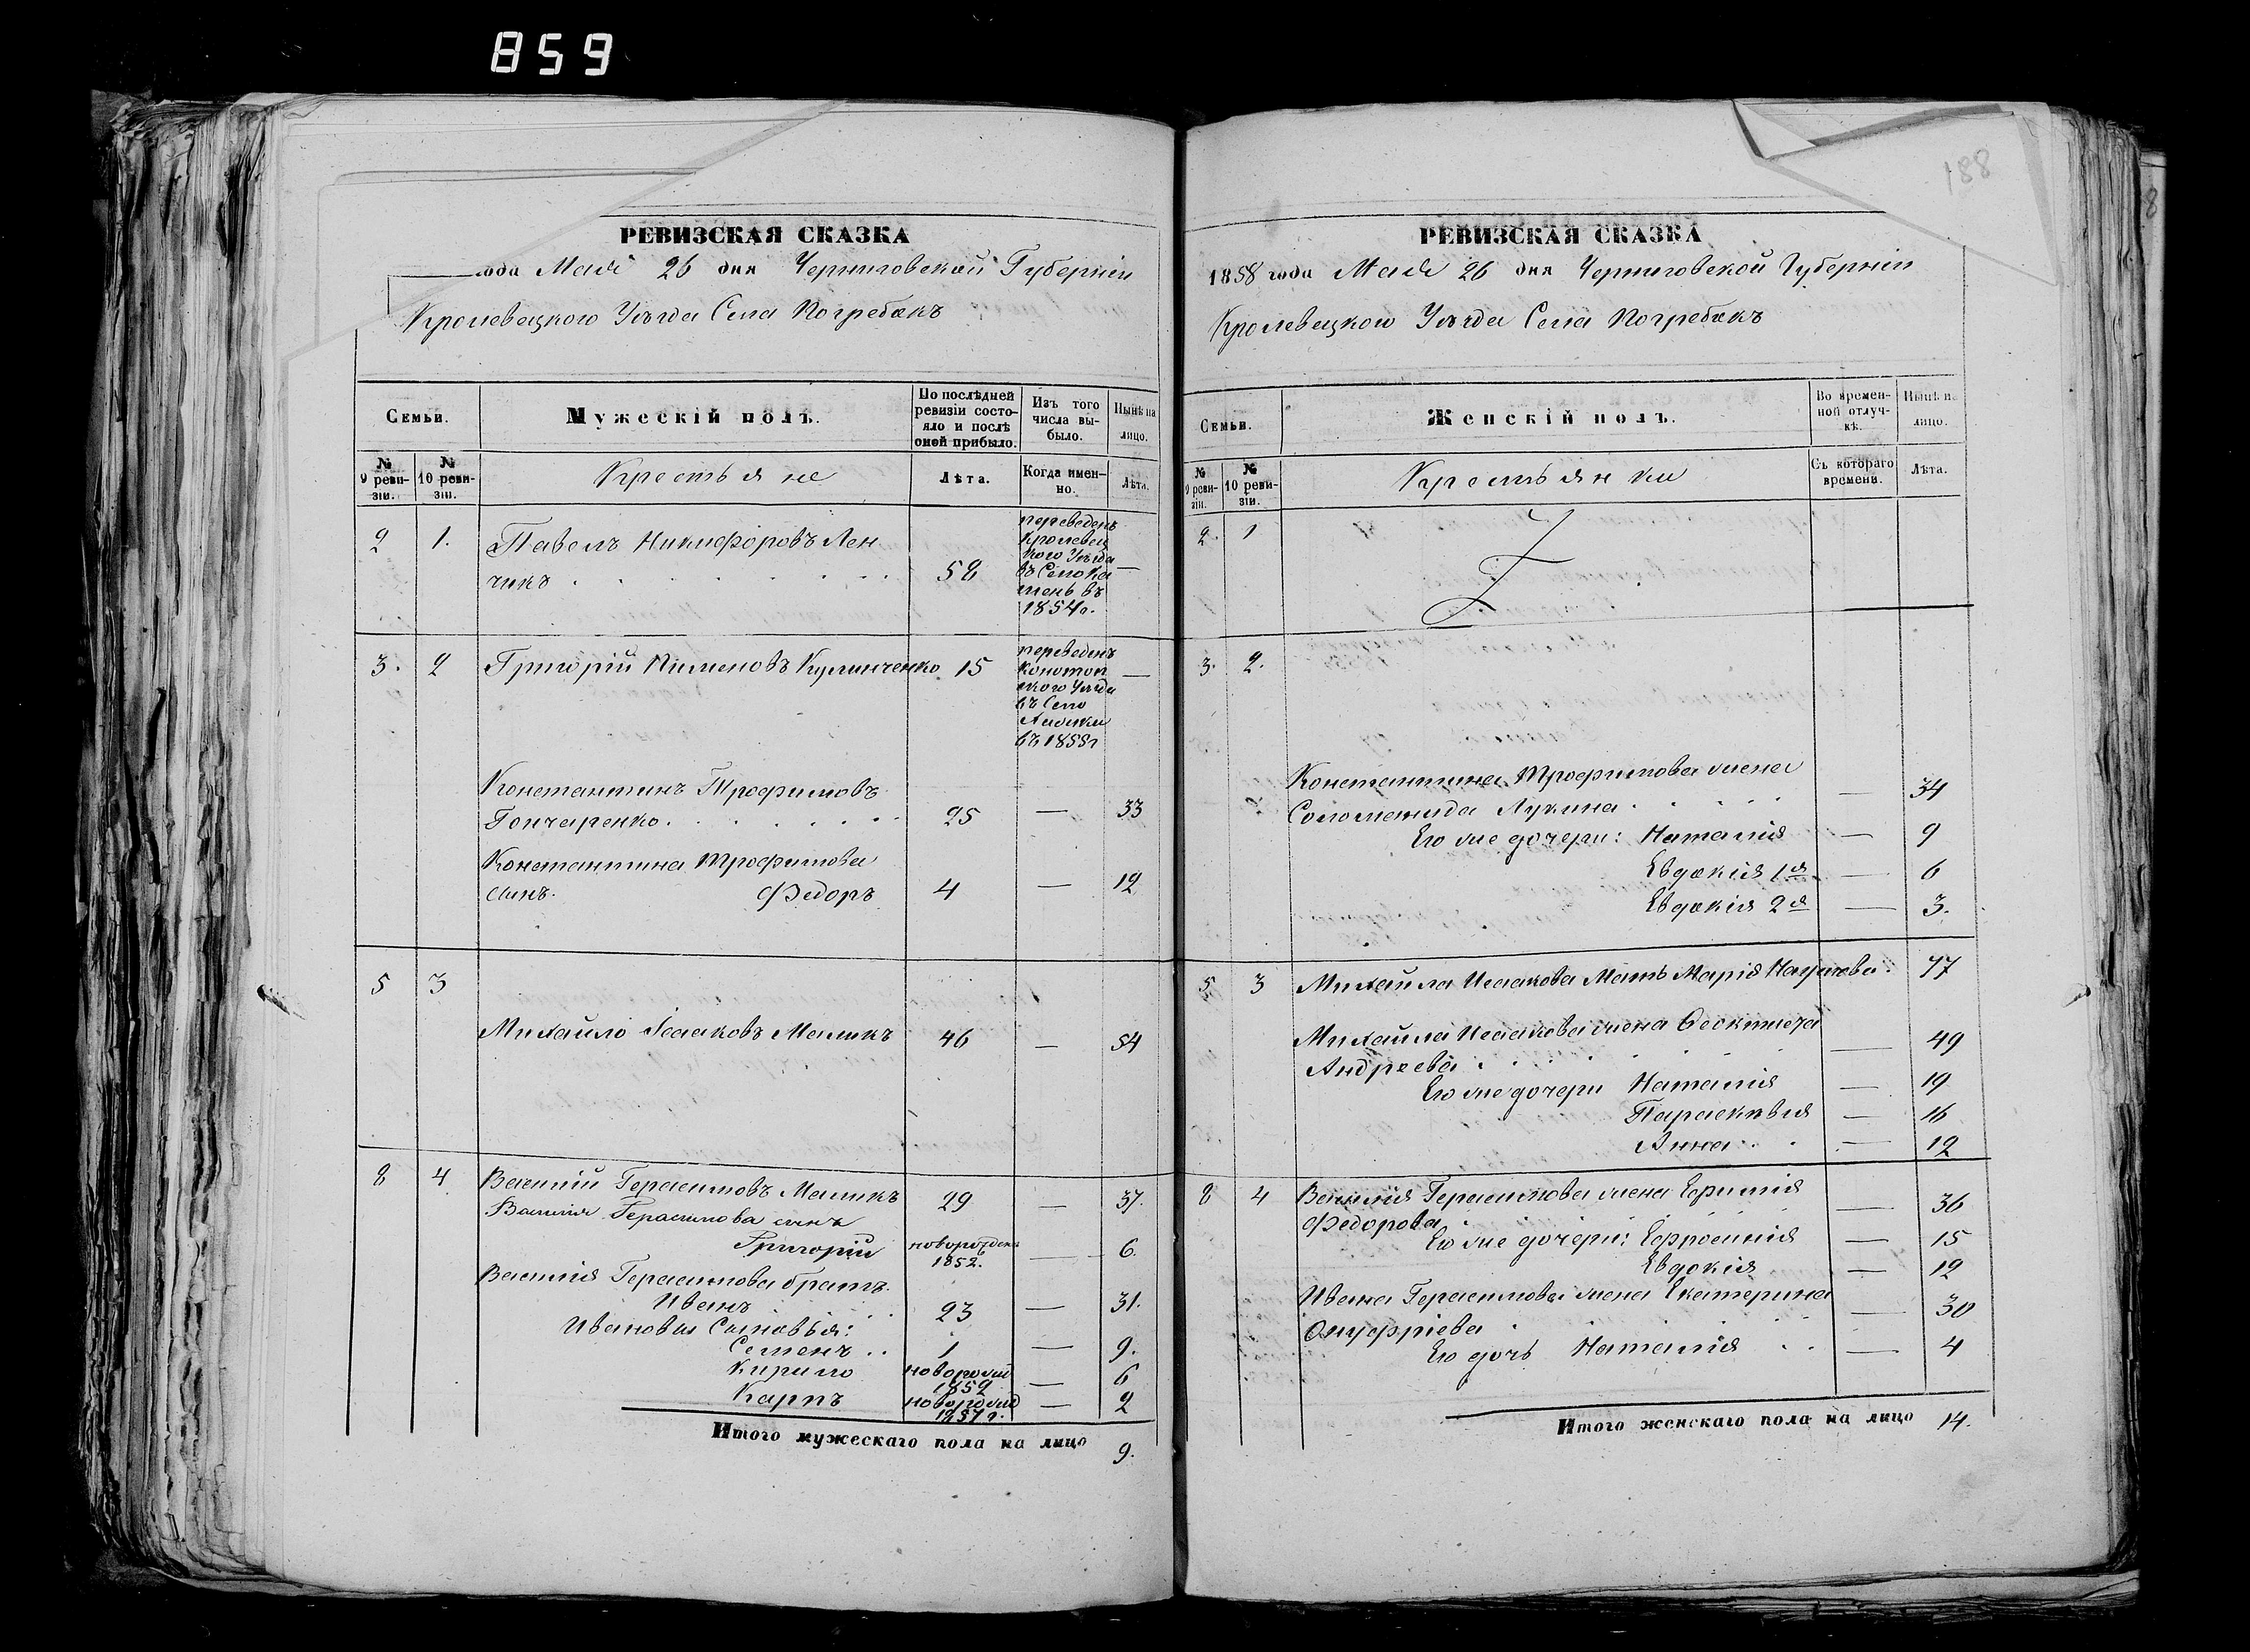 859
188
8
РЕВИЗСКАЯ СКАЗКА
года Маія 26 дня Черниговской Губерніи
Кролевецкого Уѣзда Села Погребокъ
Семьи.
Мужескій полъ.
По послѣдней ревизіи состояло и послѣ оной прибыло.
Изъ того числа выбыло.
Нынѣ на лицо.
№ 9 ревизіи.
№ 10 ревизіи.
Крестьяне
Лѣта.
Когда именно.
Лѣта.
2 1. Павелъ Никифоровъ Лен
чикъ 58 —
переведенъ
Кролевец
кого Уѣзда
въ Село Ка
мень въ
1854 г.
3. 2 Григорій Пименовъ Кулинченко 15 —
переведенъ
Конотоп
ского Уѣзда
въ Село
въ 1855 г
Константинъ Трофимовъ
Гончаренко 25 — 33
Константина Трофимова
сынъ. Федоръ 4 — 12
5 3
Михайло Исааковъ Маликъ 46 — 54
8 4 Василій Герасимовъ Маликъ 29 — 37.
Василія Герасимова сынъ
Григорій новорожден 1852. — 6.
Василія Герасимова братъ
Иванъ 23 — 31.
Ивановы Сыновья:
Семенъ 1 — 9.
Кирило новорожд 1852 — 6
Карпъ новорожд 1857 г. — 2
Итого мужескаго пола на лицо 9.
РЕВИЗСКАЯ СКАЗКА
1858 года Маія 26 дня Черниговской Губерніи
Кролевецкого Уѣзда Села Погребокъ
Семьи.
Женскій полъ.
Во временной отлучкѣ.
Нынѣ на лицо.
№ 9 ревизіи.
№ 10 ревизіи.
Крестьянки
Съ котораго времени.
Лѣта.
2. 1
3. 2.
Константина Трофимова жена
Соломанида Лукина — 34
Его же дочери: Наталія — 9
Евдокія 1я — 6
Евдокія 2я — 3.
5 3 Михайла Исаакова Мать Марія Наумова. 77
Михайла Исаакова жена Феоктиста
Андреева — 49
Его же дочери Наталія — 19
Параскѣвія — 16
Анна — 12
8 4 Василія Герасимова жена Ефимія
Федорова — 36
Его же дочери: Ефросинія — 15
Евдокія — 12
Ивана Герасимова жена Екатерина
Онуфріева — 30
Его дочь Наталія — 4
Итого женскаго пола на лицо 14.